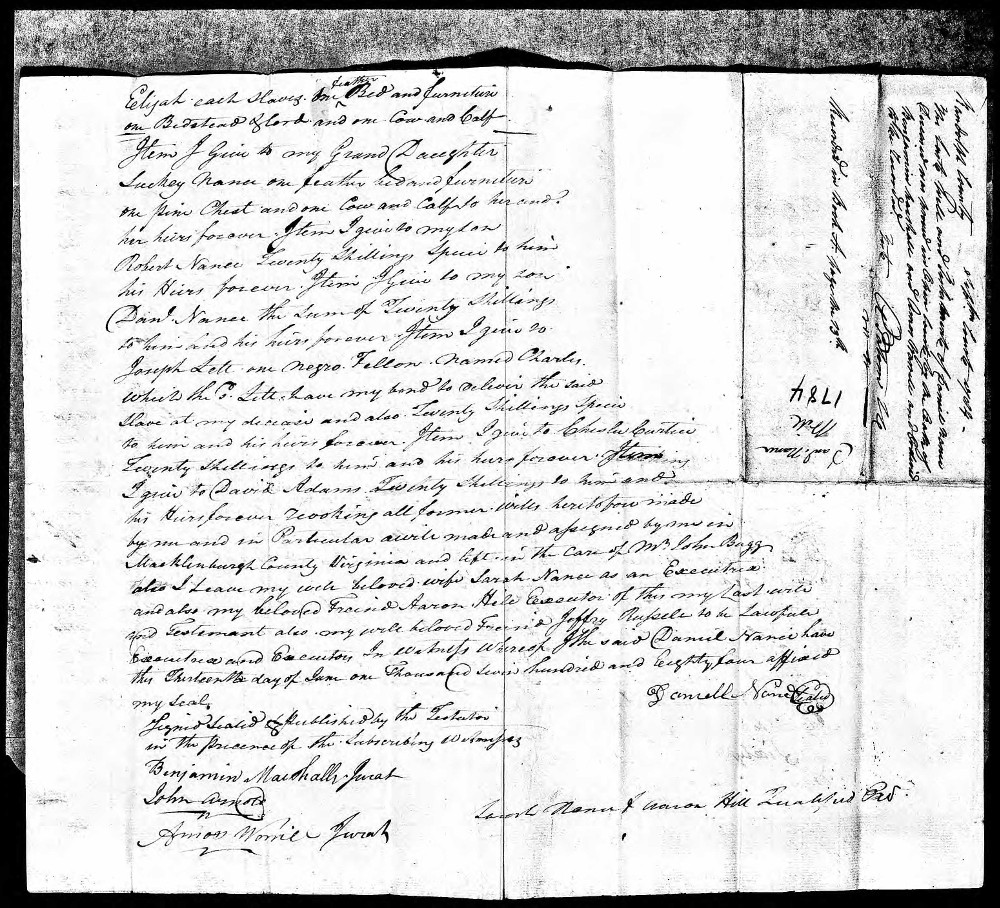 Elijah each slaves. one feather Bed and furniture
one Bedstead & Cord and one Cow and Calf
Item I Give to my Grand Daughter
Luckey Nance one feather bed and furniture
one pine Chest and one Cow and Calf to her and
her heirs forever. Item I give to my son
Robert Nance Twenty Shillings Specie to him
his Heirs forever. Item I Give to my son
Danl. Nance the Sum of Twenty Shillings
to him and his heirs forever Item I give to
Joseph Lett one negro Fellow named Charles
which the Sd. Lett have my bond to deliver the said
slave at my decease and also Twenty Shillings Specie
to him and his heirs forever. Item I give to Chesle Curtice
Twenty Shillings to him and his heirs forever. Item
I give to David Adams Twenty Shillings to him and
his Heirs forever revoking all former wills heretofore made
by me and in Particular a will made and assigned by me in
Macklenburgh County Virginia and left in the Care of Mr. John Bugg
also I Leave my well beloved wife Sarah Nance as an Executrix
and also my beloved Freind Aaron Hill Executor of this my Last will
and Testemant also my well beloved Freind Joffry Russell to be Lawfull
Executrix and Executors In witness Whereof I the said Daniel Nance have
this Thirteenth day of June one Thousand Seven hundred and Eighty four affixed
my Seal
Daniell Nance Seal
Signd Seald & Published by the Testator
in the Precence of the Subscribing Witnesses
Benjamin Marshall Jurat
John Arnold
Amos Jurat
Sarah Nance & Aaron Hill Qualified Exr.
Danl. Nance
Will
1784
Recorded in Book A page
Randolph County Court 1784
The last Will and
Benjamin Marshall and